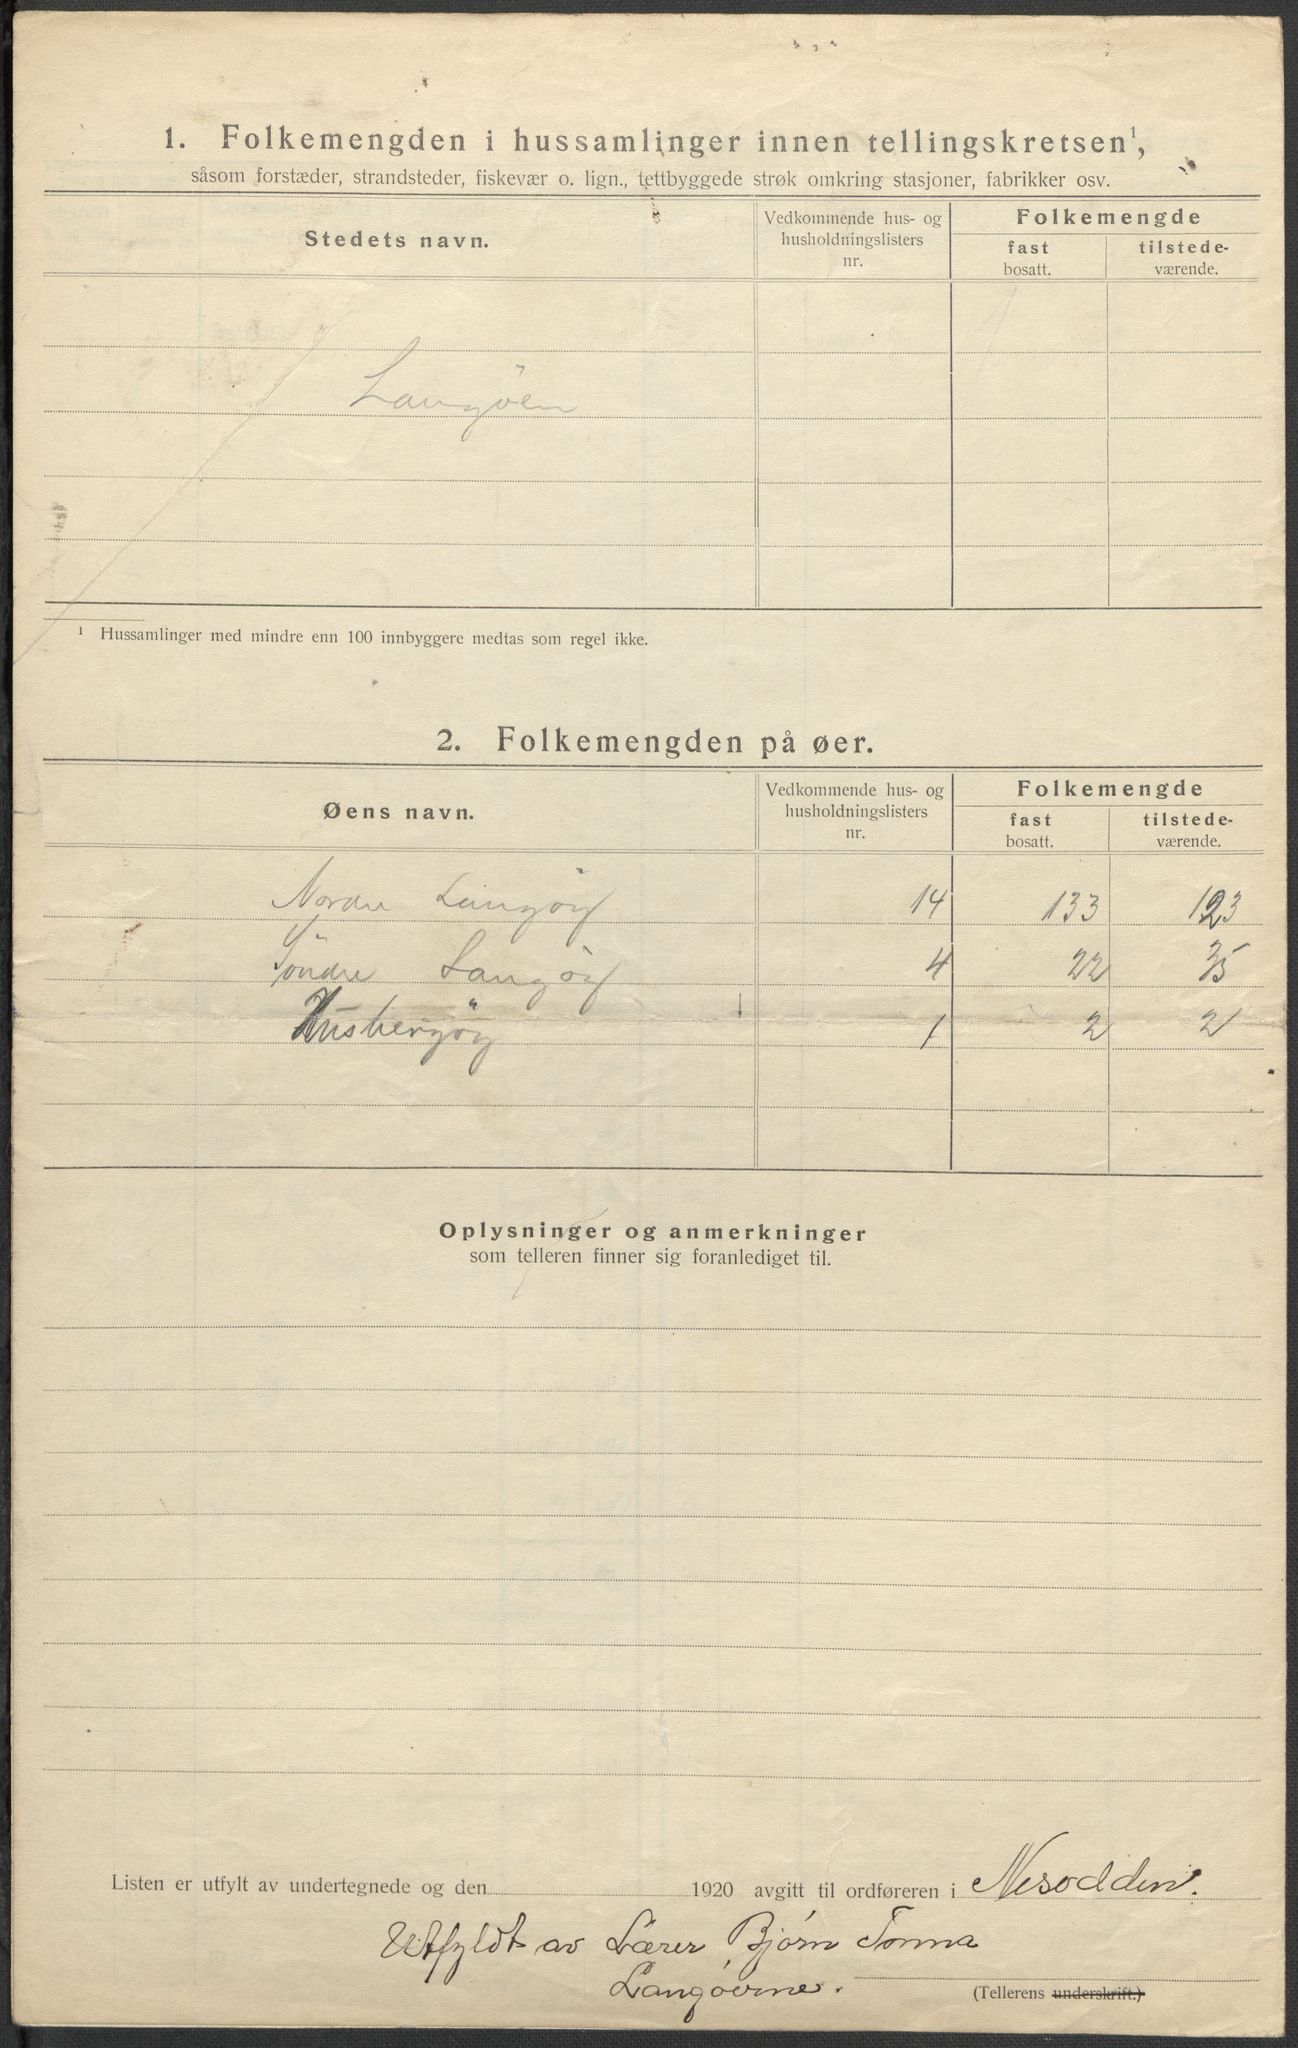 1. Folkemengden i hussamlinger innen tellingskretsen¹,
såsom forstæder, strandsteder, fiskevær o. lign., tettbyggede strøk omkring stasjoner, fabrikker osv.
Stedets navn.
Vedkommende hus- og husholdningslisters nr.
Folkemengde
fast bosatt.
tilstede-værende.
Langöen
¹ Hussamlinger med mindre enn 100 innbyggere medtas som regel ikke.
2. Folkemengden på øer.
Øens navn.
Vedkommende hus- og husholdningslisters nr.
Folkemengde
fast bosatt.
tilstede-værende.
Nordre Langöy 14 133 123
Söndre Langöy 4 22
Husbergöy 1 2 2
Oplysninger og anmerkninger
som telleren finner sig foranlediget til.
Listen er utfylt av undertegnede og den 1920 avgitt til ordføreren i Nesodden.
Utfyldt av Lærer Bjørn Tonna
Langøerne.
(Tellerens underskrift.)